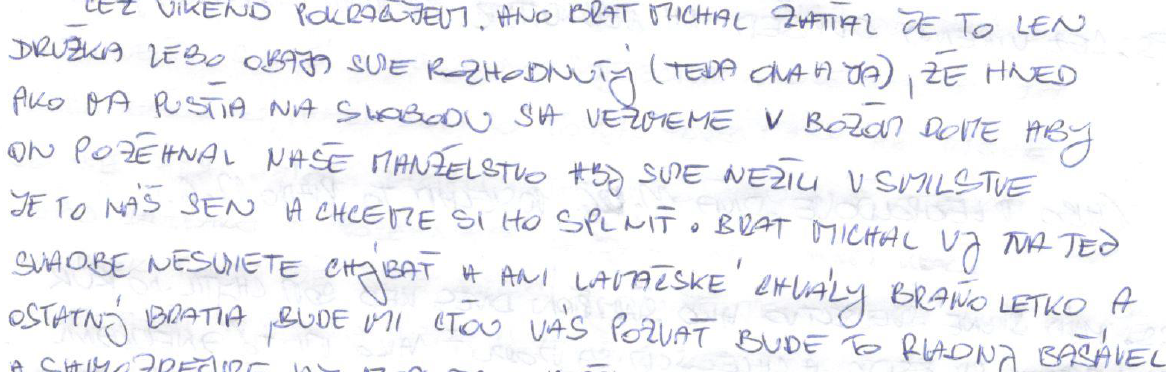 CEZ VIKEND POKRAČUJEM. ANO BRAT MICHAL ZATIAĽ JE TO LEN
DRUŽKA LEBO OBAJA SME ROZHODNUTÝ (TEDA ONA A JA), ŽE HNEĎ
AKO MA PUSTIA NA SLOBODU SA VEZMEME V BOŽOM DOME ABY
ON POŽEHNAL NAŠE MANŽELSTVO ABY SME NEŽILI V SMILSTVE
JE TO NÁŠ SEN A CHCEME SI HO SPLNIŤ. BRAT MICHAL VY NA TEJ
SVADBE NESMIETE CHÝBAŤ A ANI LAMAČSKÉ CHVÁLY BRAŇO LETKO A
OSTATNÝ BRATIA, BUDE MI CŤOU VÁS POZVAŤ BUDE TO RIADNY BAŠÁVEL